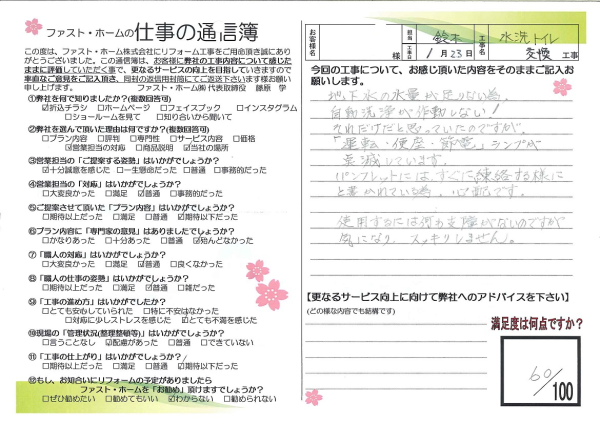 ファスト・ホームの仕事の通信簿
この度は、ファスト・ホーム株式会社にリフォーム工事をご用命頂き誠にあり
がとうございました。この通信簿は、お客様に弊社の工事内容について感じた
ままに評価していただく事で、更なるサービスの向上を目指していきますので
率直なご意見をご記入頂き、同封の返信用封筒にてご返送下さいます様お願い
申し上げます。 ファスト・ホーム㈱代表取締役 藤原 学
①弊社を何で知りましたか?(複数回答可)
☑折込チラシ □ホームページ □フェイスブック □インスタグラム
□ショールームを見て □知り合いから聞いて
②弊社を選んで頂いた理由は何ですか?(複数回答可)
□プラン内容 □評判 □専門性 □サービス内容 □価格
☑営業担当の対応 □商品説明 ☑当社の場所
③営業担当の「ご提案する姿勢」はいかがでしょうか?
☑十分誠意を感じた □一生懸命だった □普通 □事務的だった
④営業担当の「対応」はいかがでしょうか?
□大変良かった □満足 ☑普通 □事務的だった
⑤ご提案させて頂いた「プラン内容」はいかがでしょうか?
□期待以上だった □満足 □普通 ☑期待以下だった
⑥プラン内容に「専門家の意見」はありましたでしょうか?
□かなりあった □十分あった □普通 ☑殆んどなかった
⑦「職人の対応」はいかがでしょうか?
□大変良かった □満足 ☑普通 □良くなかった
⑧「職人の仕事の姿勢」はいかがでしょうか?
□期待以上だった □満足 ☑普通 □雑だった
⑨「工事の進め方」はいかがでしょうか?
□とても安心していられた □特に不安はなかった
□対応に少しストレスを感じた ☑とても不満を感じた
⑩現場の「管理状況(整理整頓等)」はいかがでしょうか?
□言うことなし ☑配慮があった □普通 □できていない
⑪「工事の仕上がり」はいかがでしょうか?
□期待以上だった □満足 □普通 ☑期待以下だった
⑫もし、お知合いにリフォームの予定がありましたら
ファスト・ホームを「お勧め」頂けますでしょうか?
□ぜひ勧めたい □勧めてもいい ☑わからない □勧められない
お客様名 様
担当 鈴木
工事日 1月23日
工事名 水洗トイレ
交換 工事
今回の工事について、お感じ頂いた内容をそのままご記入お
願いします。
地下水の水量が足りない為
自動洗浄が作動しない!
それだけだと思っていたのですが、
「運転・便座・節電」ランプが
点滅しています。
パンフレットには、すぐに連絡する様に
と書かれている為、心配です。
使用するには何の支障がないのですが
気になり、スッキリしません。
【更なるサービス向上に向けて弊社へのアドバイスを下さい】
(どの様な内容でも結構です)
満足度は何点ですか?
60/100